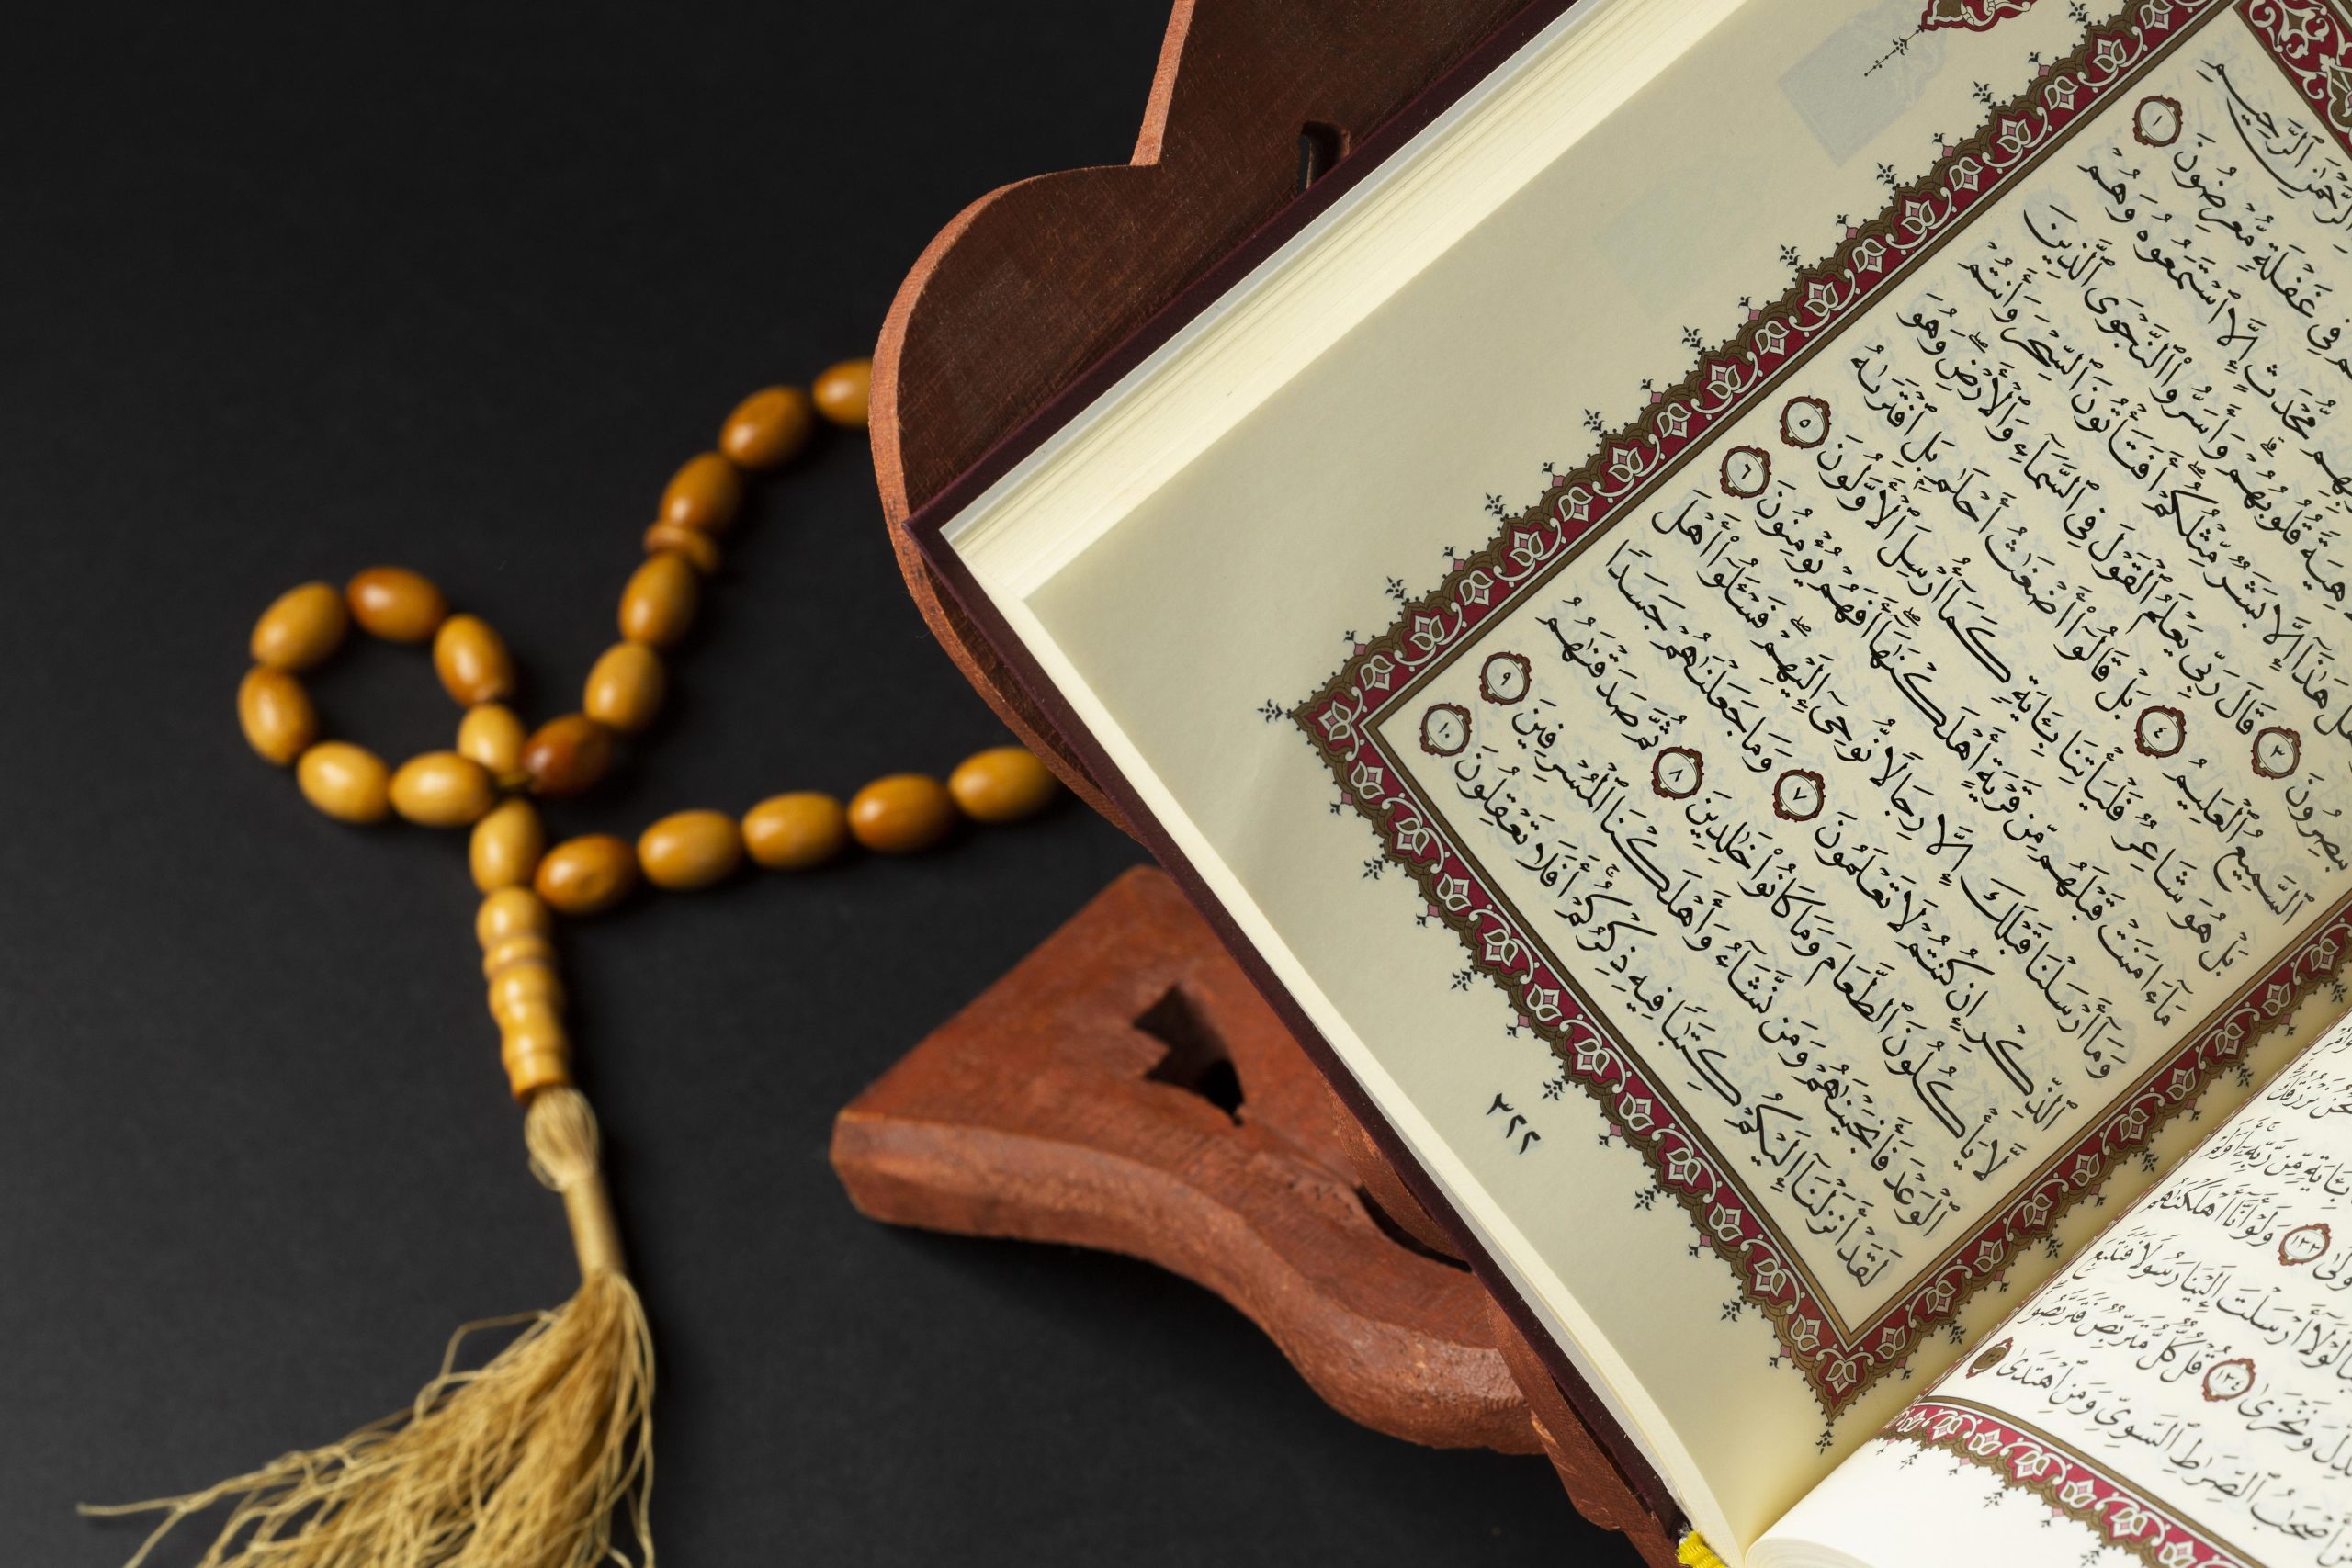 ٱلرَّحْمَٰنِ ٱلرَّحِيمِ
فِى غَفْلَةٍ مُّعْرِضُونَ ١
مُّحْدَثٍ إِلَّا ٱسْتَمَعُوهُ وَهُمْ
لَاهِيَةً قُلُوبُهُمْ ۗ وَأَسَرُّوا۟ ٱلنَّجْوَى ٱلَّذِينَ
هَلْ هَٰذَآ إِلَّا بَشَرٌ مِّثْلُكُمْ ۖ أَفَتَأْتُونَ ٱلسِّحْرَ وَأَنتُمْ
تُبْصِرُونَ ٣ قَالَ رَبِّى يَعْلَمُ ٱلْقَوْلَ فِى ٱلسَّمَآءِ وَٱلْأَرْضِ ۖ وَهُوَ
ٱلسَّمِيعُ ٱلْعَلِيمُ ٤ بَلْ قَالُوٓا۟ أَضْغَٰثُ أَحْلَٰمٍۭ بَلِ ٱفْتَرَىٰهُ
بَلْ هُوَ شَاعِرٌ فَلْيَأْتِنَا بِـَٔايَةٍ كَمَآ أُرْسِلَ ٱلْأَوَّلُونَ ٥
مَآ ءَامَنَتْ قَبْلَهُم مِّن قَرْيَةٍ أَهْلَكْنَٰهَآ ۖ أَفَهُمْ يُؤْمِنُونَ ٦
وَمَآ أَرْسَلْنَا قَبْلَكَ إِلَّا رِجَالًا نُّوحِىٓ إِلَيْهِمْ ۖ فَسْـَٔلُوٓا۟ أَهْلَ
ٱلذِّكْرِ إِن كُنتُمْ لَا تَعْلَمُونَ ٧ وَمَا جَعَلْنَٰهُمْ جَسَدًا
لَّا يَأْكُلُونَ ٱلطَّعَامَ وَمَا كَانُوا۟ خَٰلِدِينَ ٨ ثُمَّ صَدَقْنَٰهُمُ
ٱلْوَعْدَ فَأَنجَيْنَٰهُمْ وَمَن نَّشَآءُ وَأَهْلَكْنَا ٱلْمُسْرِفِينَ ٩
لَقَدْ أَنزَلْنَآ إِلَيْكُمْ كِتَٰبًا فِيهِ ذِكْرُكُمْ ۖ أَفَلَا تَعْقِلُونَ ١٠
٣٢٢
نَحْنُ نَرْزُقُكَ
بِـَٔايَةٍ مِّن رَّبِّهِۦٓ ۚ أَوَلَمْ
١٣٣ وَلَوْ أَنَّآ أَهْلَكْنَٰهُم
لَوْلَآ أَرْسَلْتَ إِلَيْنَا رَسُولًا فَنَتَّبِعَ
وَنَخْزَىٰ ١٣٤ قُلْ كُلٌّ مُّتَرَبِّصٌ فَتَرَبَّصُوا۟
أَصْحَٰبُ ٱلصِّرَٰطِ ٱلسَّوِىِّ وَمَنِ ٱهْتَدَىٰ